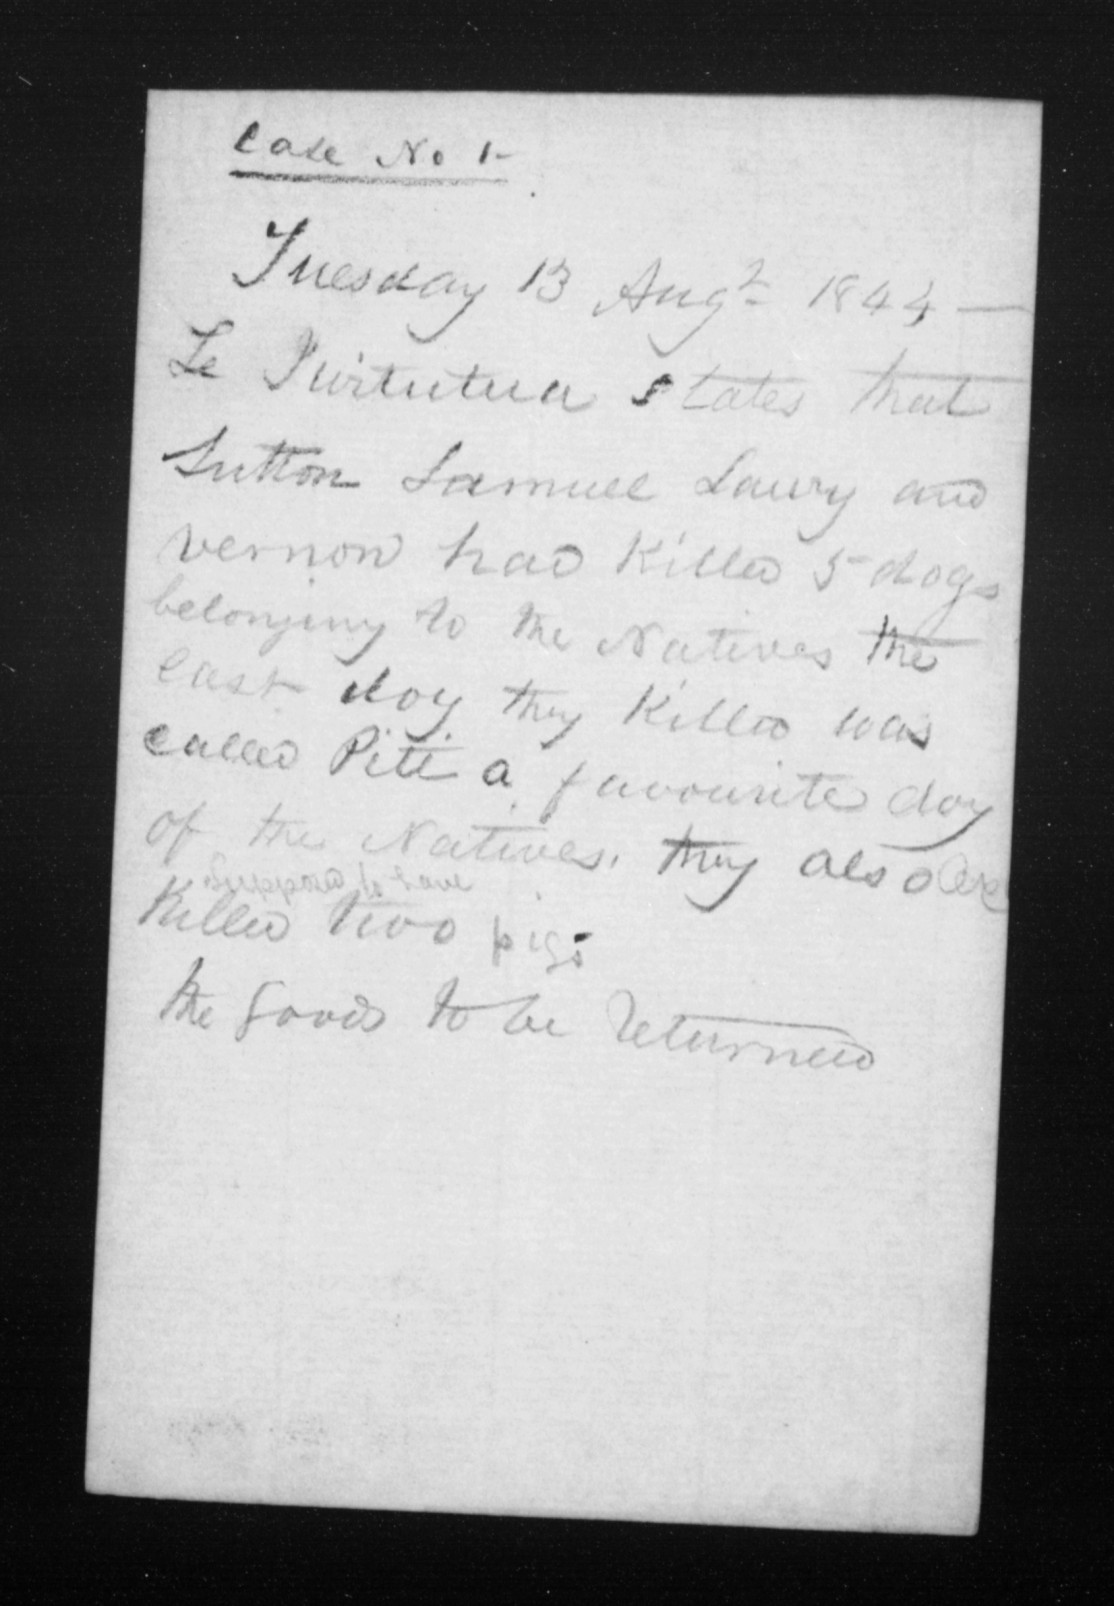 Case No 1-
Tuesday 13 Augt 1844 —
Te Puirtutua states that
Sutton Samuel Laury and
vernon had Killed 5 dogs
belonging to the Natives the
last dog they Killed was
called Piti a favourite dog
of the Natives. they also are
supposed to have
Killed two pigs
the Goods to be returned